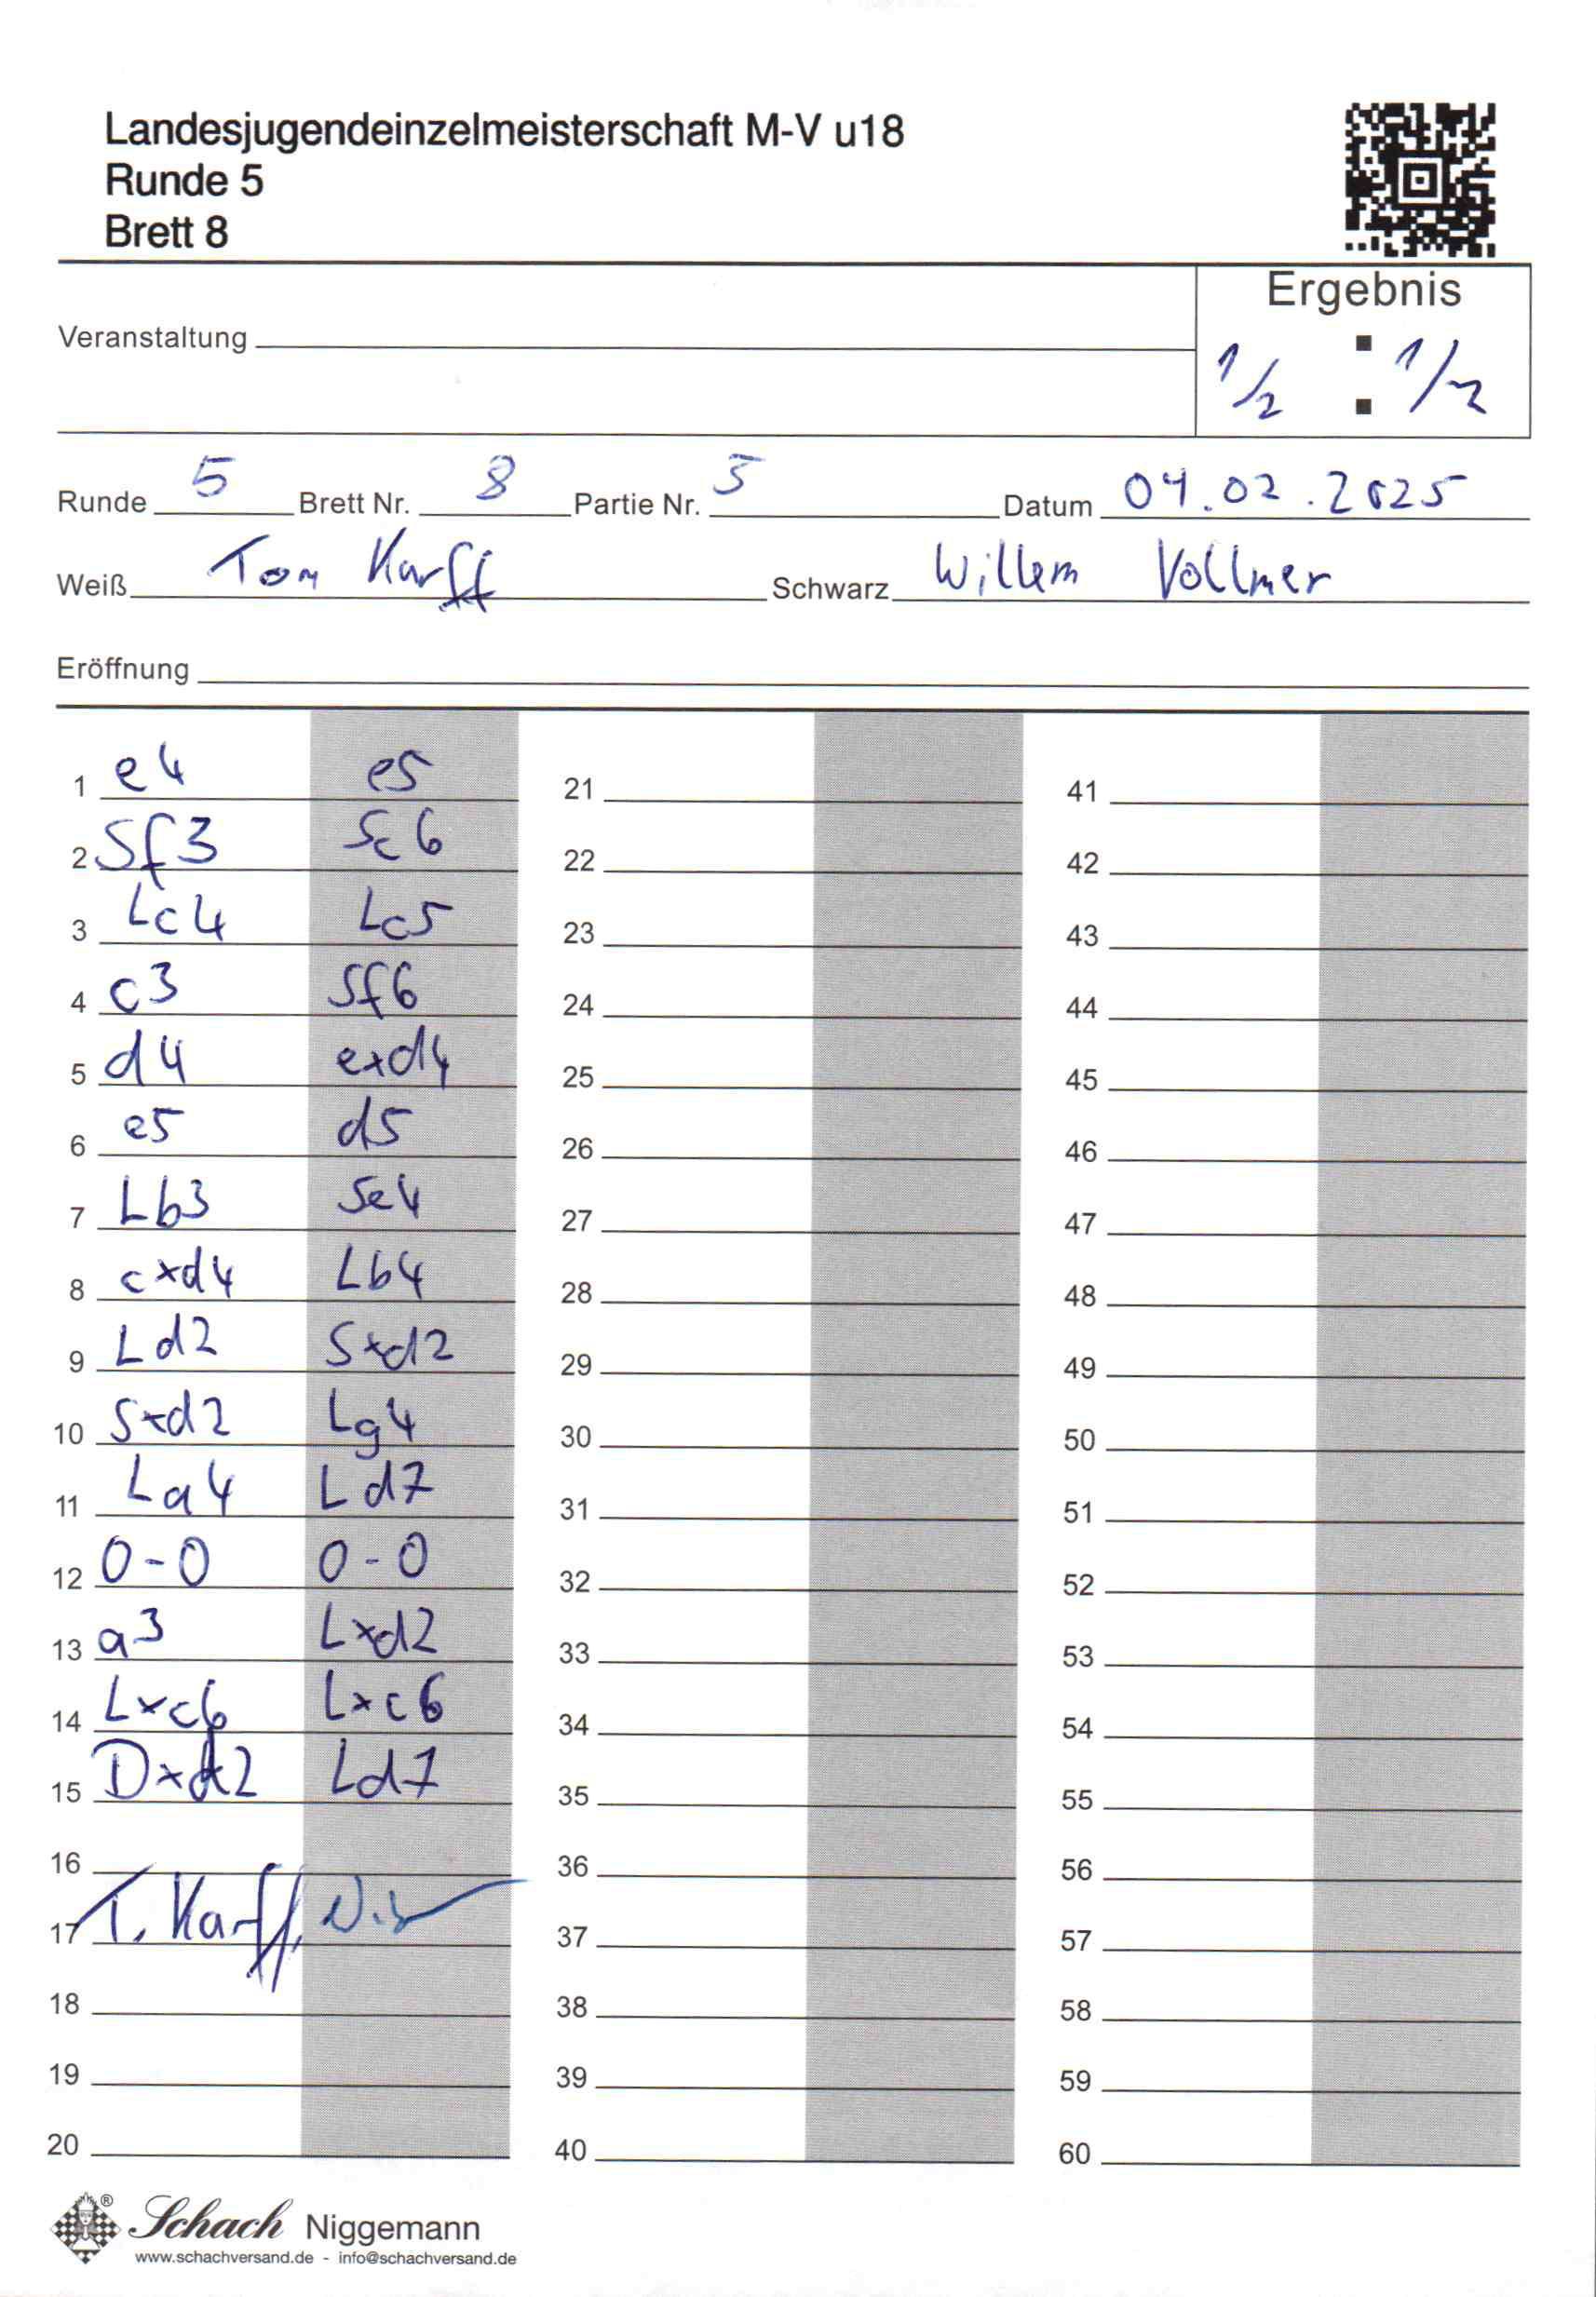 Landesjugendeinzelmeisterschaft M-V u18
Runde 5
Brett 8
Ergebnis
Veranstaltung
1/2 : 1/2
Runde 5 Brett Nr. 8 Partie Nr. 5 Datum 04.02.2025
Weiß Tom Karff Schwarz Willem Vollmer
Eröffnung
1 e4 e5 21 41
2 Sf3 Sc6 22 42
3 Lc4 Lc5 23 43
4 c3 Sf6 24 44
5 d4 exd4 25 45
6 e5 d5 26 46
7 Lb3 Se4 27 47
8 cxd4 Lb4 28 48
9 Ld2 Sxd2 29 49
10 Sxd2 Lg4 30 50
11 La4 Ld7 31 51
12 0-0 0-0 32 52
13 a3 Lxd2 33 53
14 Lxc6 Lxc6 34 54
15 Dxd2 Ld7 35 55
16 36 56
17 T. Karff 37 57
18 38 58
19 39 59
20 40 60
Schach Niggemann
www.schachversand.de - info@schachversand.de